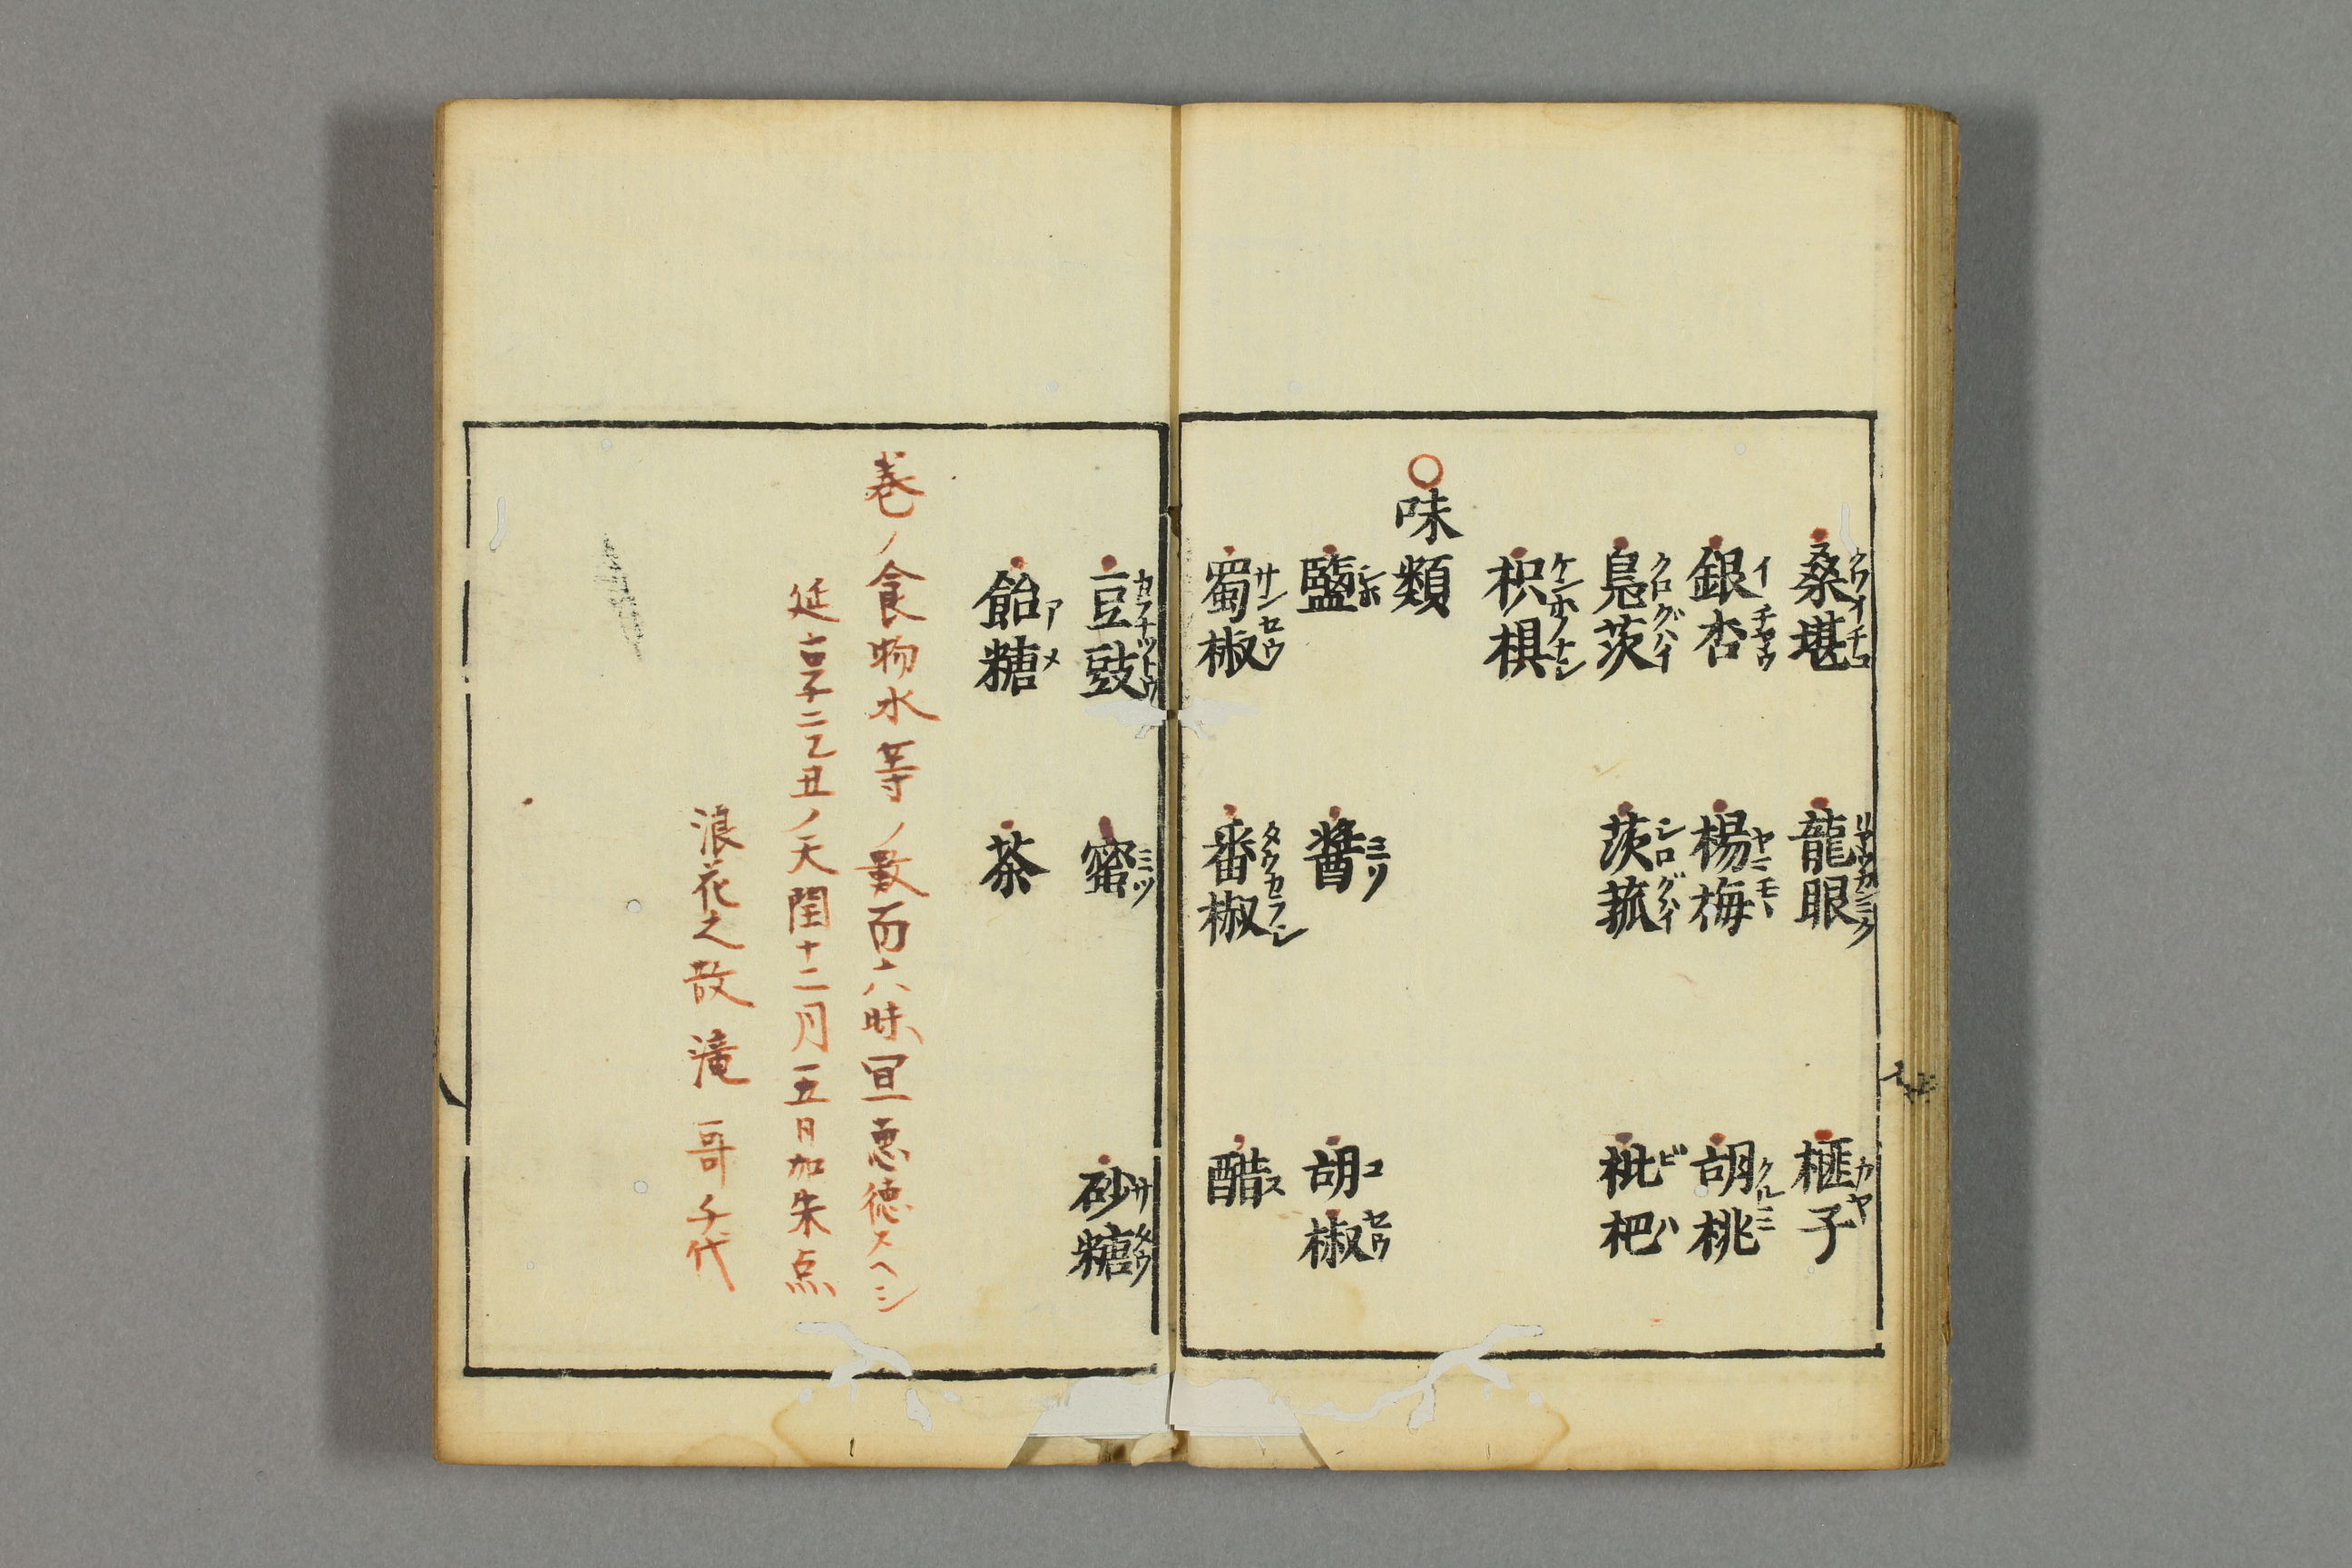 桑堪 龍眼 榧子
クワイチコ リウガンニク カヤ
銀杏 楊梅 胡桃
イチヤウ ヤミモヽ クルミ
鳧茨 茨菰 枇杷
クロクハイ シログハイ ビハ
枳椇
ケンホノナシ
〇味類
鹽 醬 胡椒
シホ ミソ コセウ
蜀椒 番椒 醋
サンセウ タウカラシ ス
豆豉 蜜 砂糖
ミツ サタウ
飴糖 茶
アメ
巻ノ食物水等ノ數百六味宜恵徳スヘシ
延享二乙丑ノ天閏十二月五日加朱点
浪花之散 滝 哥千代